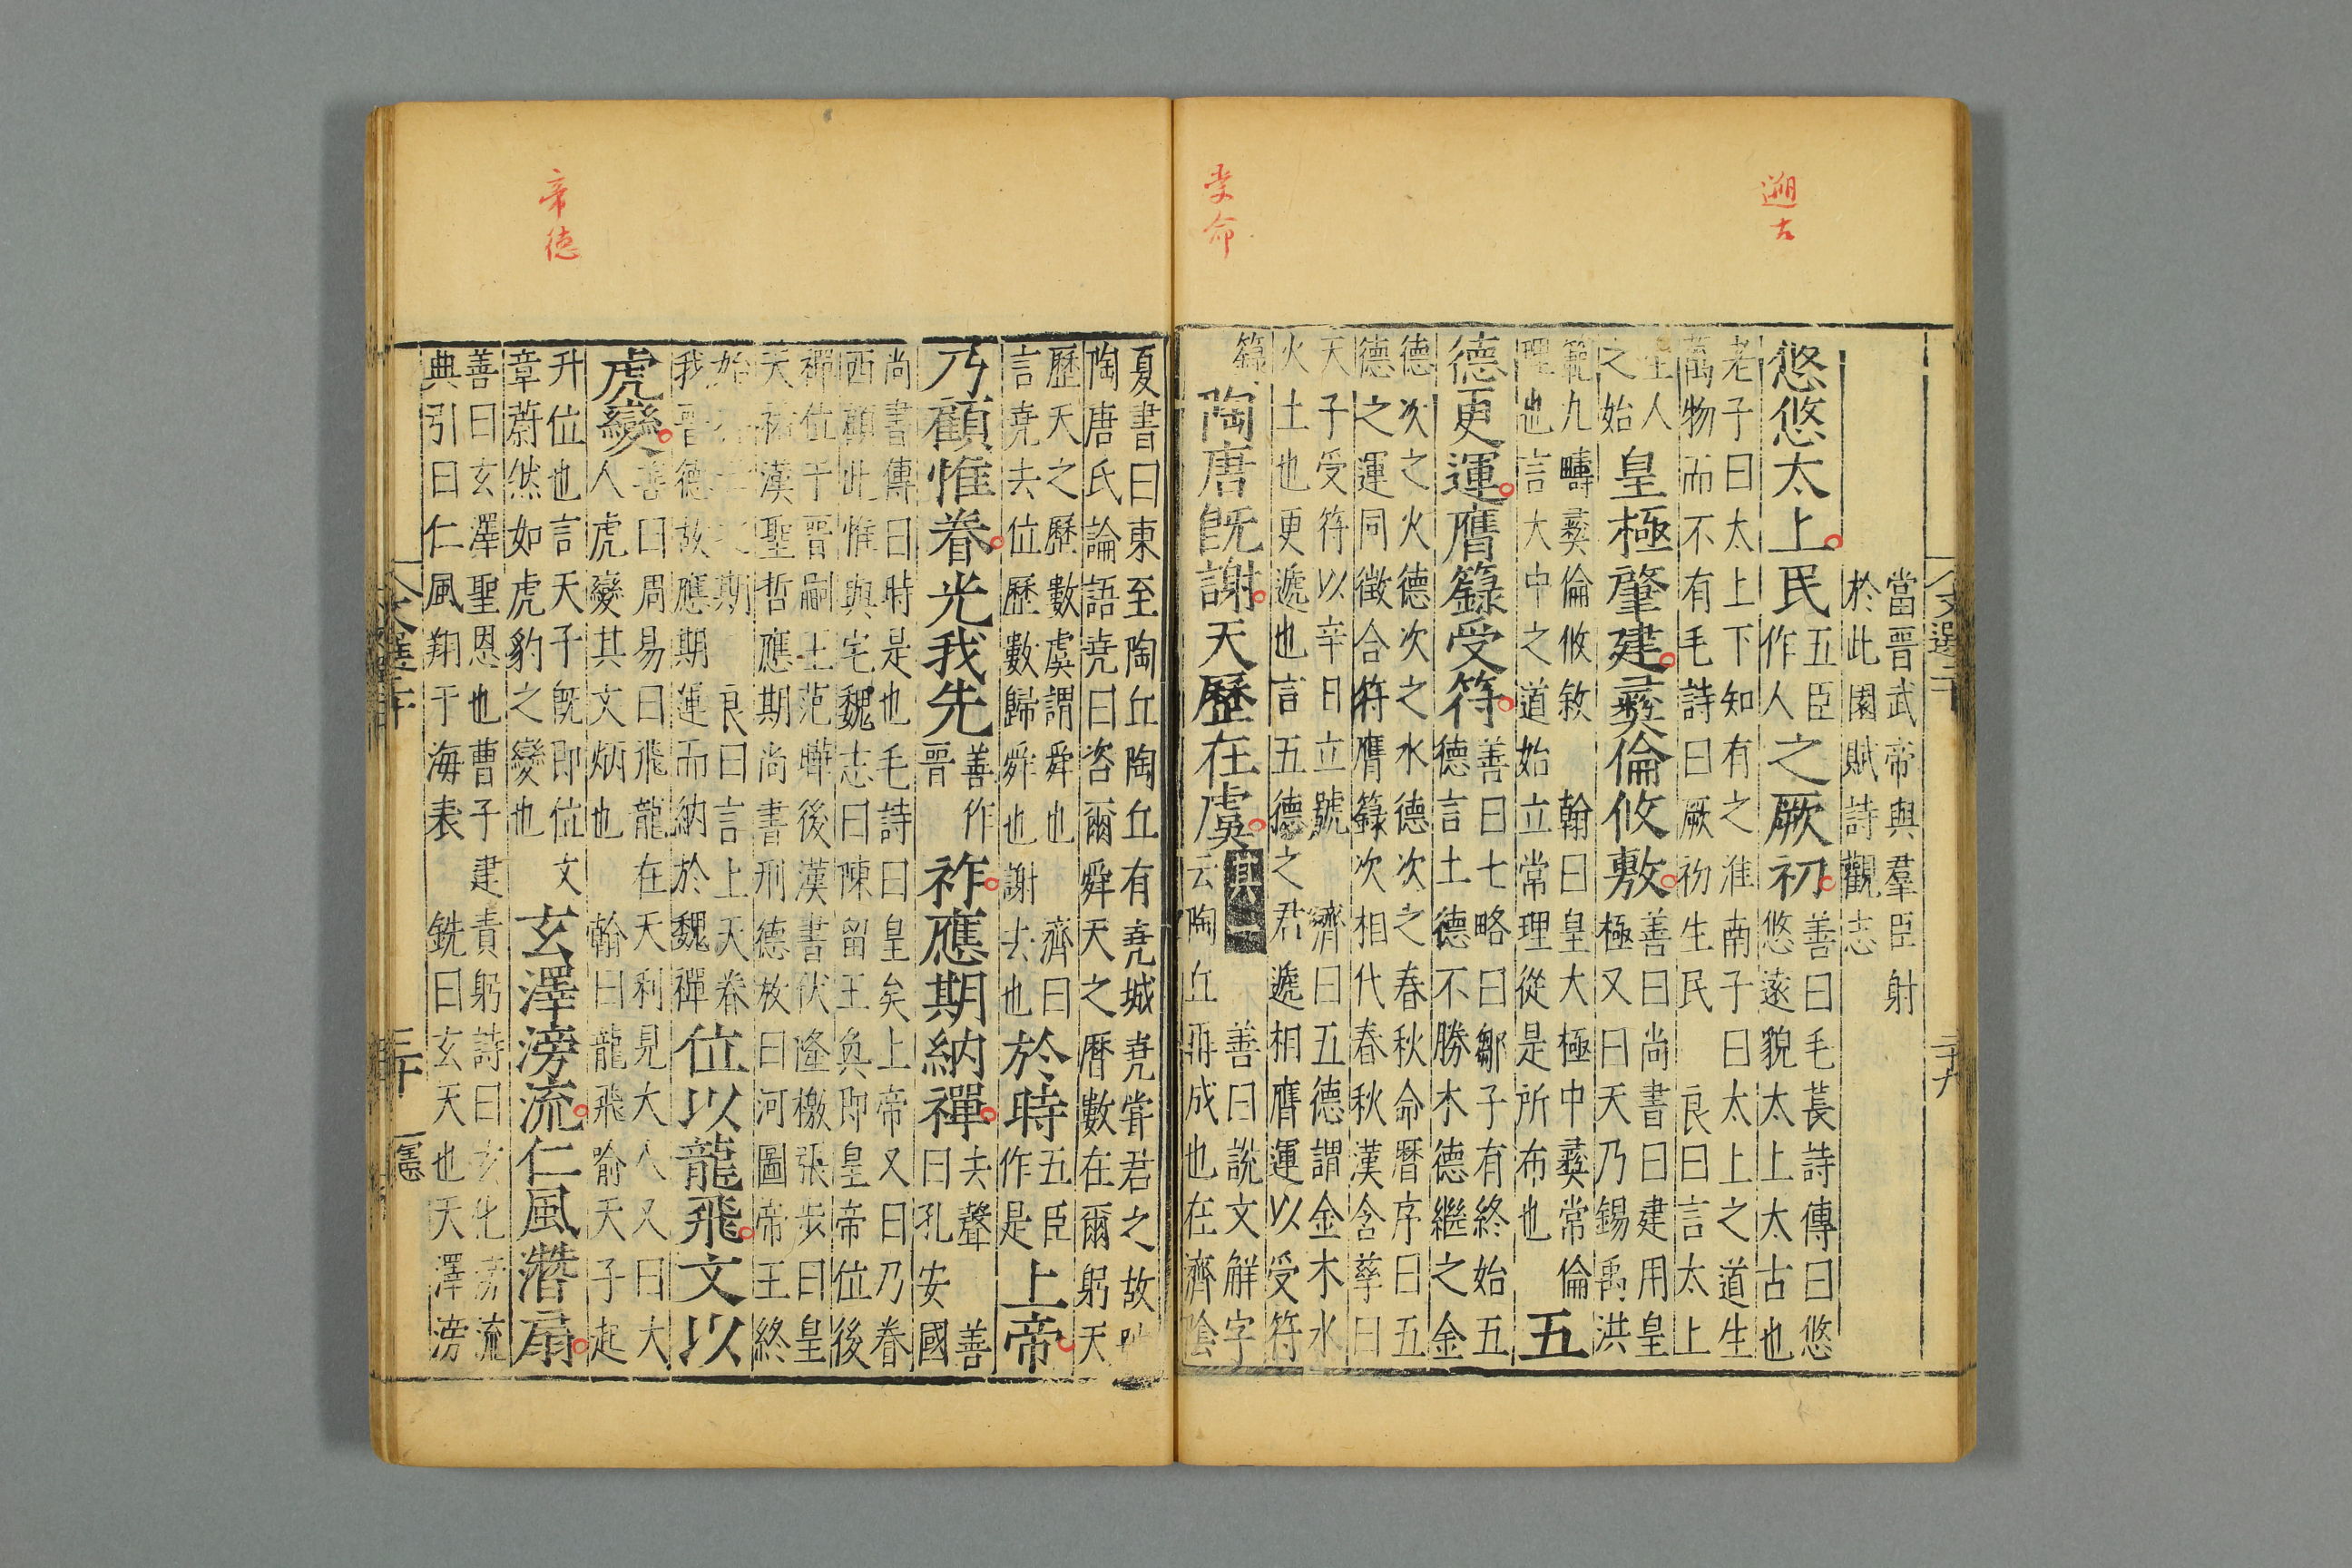 遡古
受命
當晉武帝與羣臣射
於此園賦詩觀志
悠悠太上民五臣作人之厥初善曰毛萇詩傳曰悠
悠遠貌太上太古也
老子曰太上下知有之淮南子曰太上之道生
萬物而不有毛詩曰厥初生民良曰言太上
聖人
之始皇極肇建彝倫攸敷善曰尚書曰建用皇
極又曰天乃錫禹洪
範九疇彝倫攸敘翰曰皇大極中彝常倫
理也言大中之道始立常理從是所布也五
德更運膺籙受符善曰七略曰鄒子有終始五
德言土德不勝木德繼之金
德次之火德次之水德次之春秋命曆序曰五
德之運同徵合符膺籙次相代春秋漢含孳曰
天子受符以辛日立號濟曰五德謂金木水
火土也更遞也言五德之君遞相膺運以受符
籙陶唐旣謝天歷在虞其一善曰說文解字
云陶丘再成也在濟陰
文選二十
二十九
帝德
夏書曰東至陶丘陶丘有堯城堯嘗君之故
陶唐氏論語堯曰咨爾舜天之曆數在爾躬天
歷天之歷數虞謂舜也濟曰
言堯去位歷數歸舜也謝去也於時五臣作是上帝
乃顧惟眷光我先善作晉祚應期納禪去聲善曰孔安國
尚書傳曰時是也毛詩曰皇矣上帝又曰乃眷
西顧此惟與宅魏志曰陳留王奐即皇帝位後
禪位于晉嗣王范曄後漢書伏隆檄張步曰皇
天祐漢聖哲應期尚書刑德放曰河圖帝王終
始期良曰言上天眷
我晉德故應期運而納於魏禪位以龍飛文以
虎變善曰周易曰飛龍在天利見大人又曰大
人虎變其文炳也翰曰龍飛喻天子起
升位也言天子旣即位文
章蔚然如虎豹之變也玄澤滂流仁風潛扇
善曰玄澤聖恩也曹子建責躬詩曰玄化滂流
典引曰仁風翔于海表銑曰玄天也天澤滂
文選二十
三十
憲